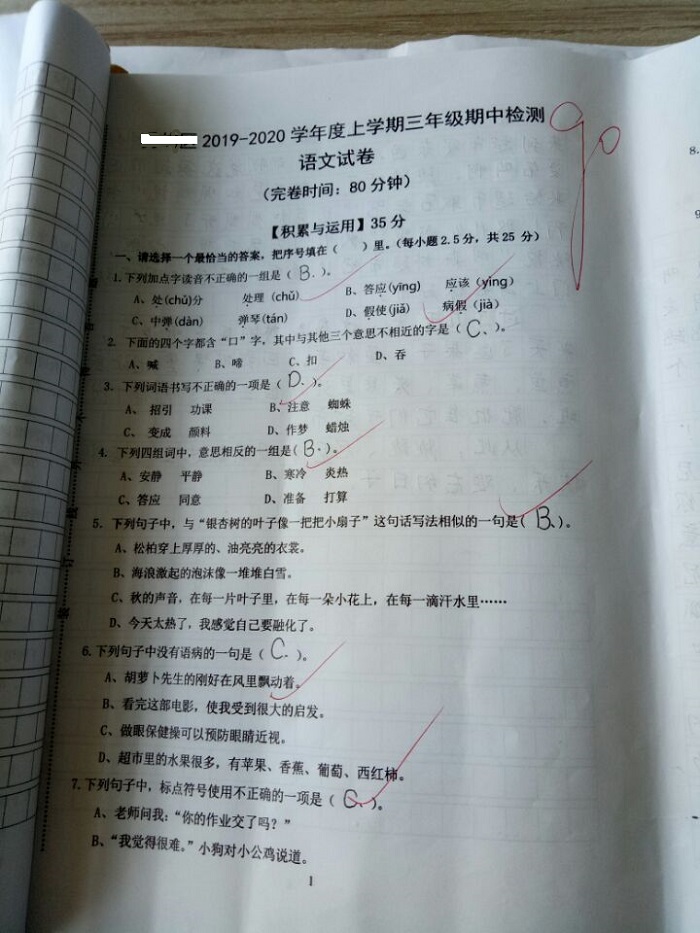 2019-2020 学年度上学期三年级期中检测
90
语文试卷
（完卷时间：80 分钟）
【积累与运用】35 分
一、请选择一个最恰当的答案，把序号填在（ ）里。（每小题 2.5 分，共 25 分）
1.下列加点字读音不正确的一组是（ B. ）。
A、处(chǔ)分 处理（chǔ） B、答应(yīng) 应该（yīng）
C、中弹(dàn) 弹琴(tán) D、假使(jiǎ) 病假（jià）
2. 下面的四个字都含“口”字，其中与其他三个意思不相近的字是（ C、）。
A、喊 B、啼 C、扣 D、吞
3. 下列词语书写不正确的一项是（ D. ）。
A、 招引 功课 B、注意 蜘蛛
C、 变成 颜料 D、作梦 蜡烛
4. 下列四组词中，意思相反的一组是（ B. ）。
A、安静 平静 B、寒冷 炎热
C、答应 同意 D、准备 打算
5. 下列句子中，与“银杏树的叶子像一把把小扇子”这句话写法相似的一句是（ B、）。
A、松柏穿上厚厚的、油亮亮的衣裳。
B、海浪激起的泡沫像一堆堆白雪。
C、秋的声音，在每一片叶子里，在每一朵小花上，在每一滴汗水里……
D、今天太热了，我感觉自己要融化了。
6.下列句子中没有语病的一句是（ C. ）。
A、胡萝卜先生的刚好在风里飘动着。
B、看完这部电影，使我受到很大的启发。
C、做眼保健操可以预防眼睛近视。
D、超市里的水果很多，有苹果、香蕉、葡萄、西红柿。
7.下列句子中，标点符号使用不正确的一项是（ C、）。
A、老师问我：“你的作业交了吗？”
B、“我觉得很难。”小狗对小公鸡说道。
1
8.